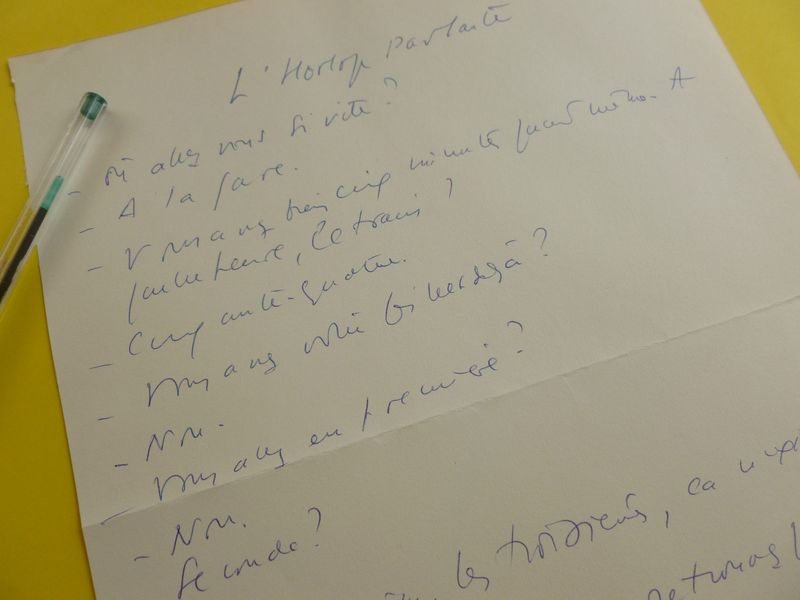 L'Horloge Parlante
- Où allez vous si vite ?
- A la gare.
- Vous avez bien cinq minutes quand même. A
quelle heure, le train ?
- Cinquante-quatre.
- Vous avez votre billet déjà ?
- Non.
- Vous allez en première ?
- Non.
Seconde ?
les troisièmes, ça n'ex